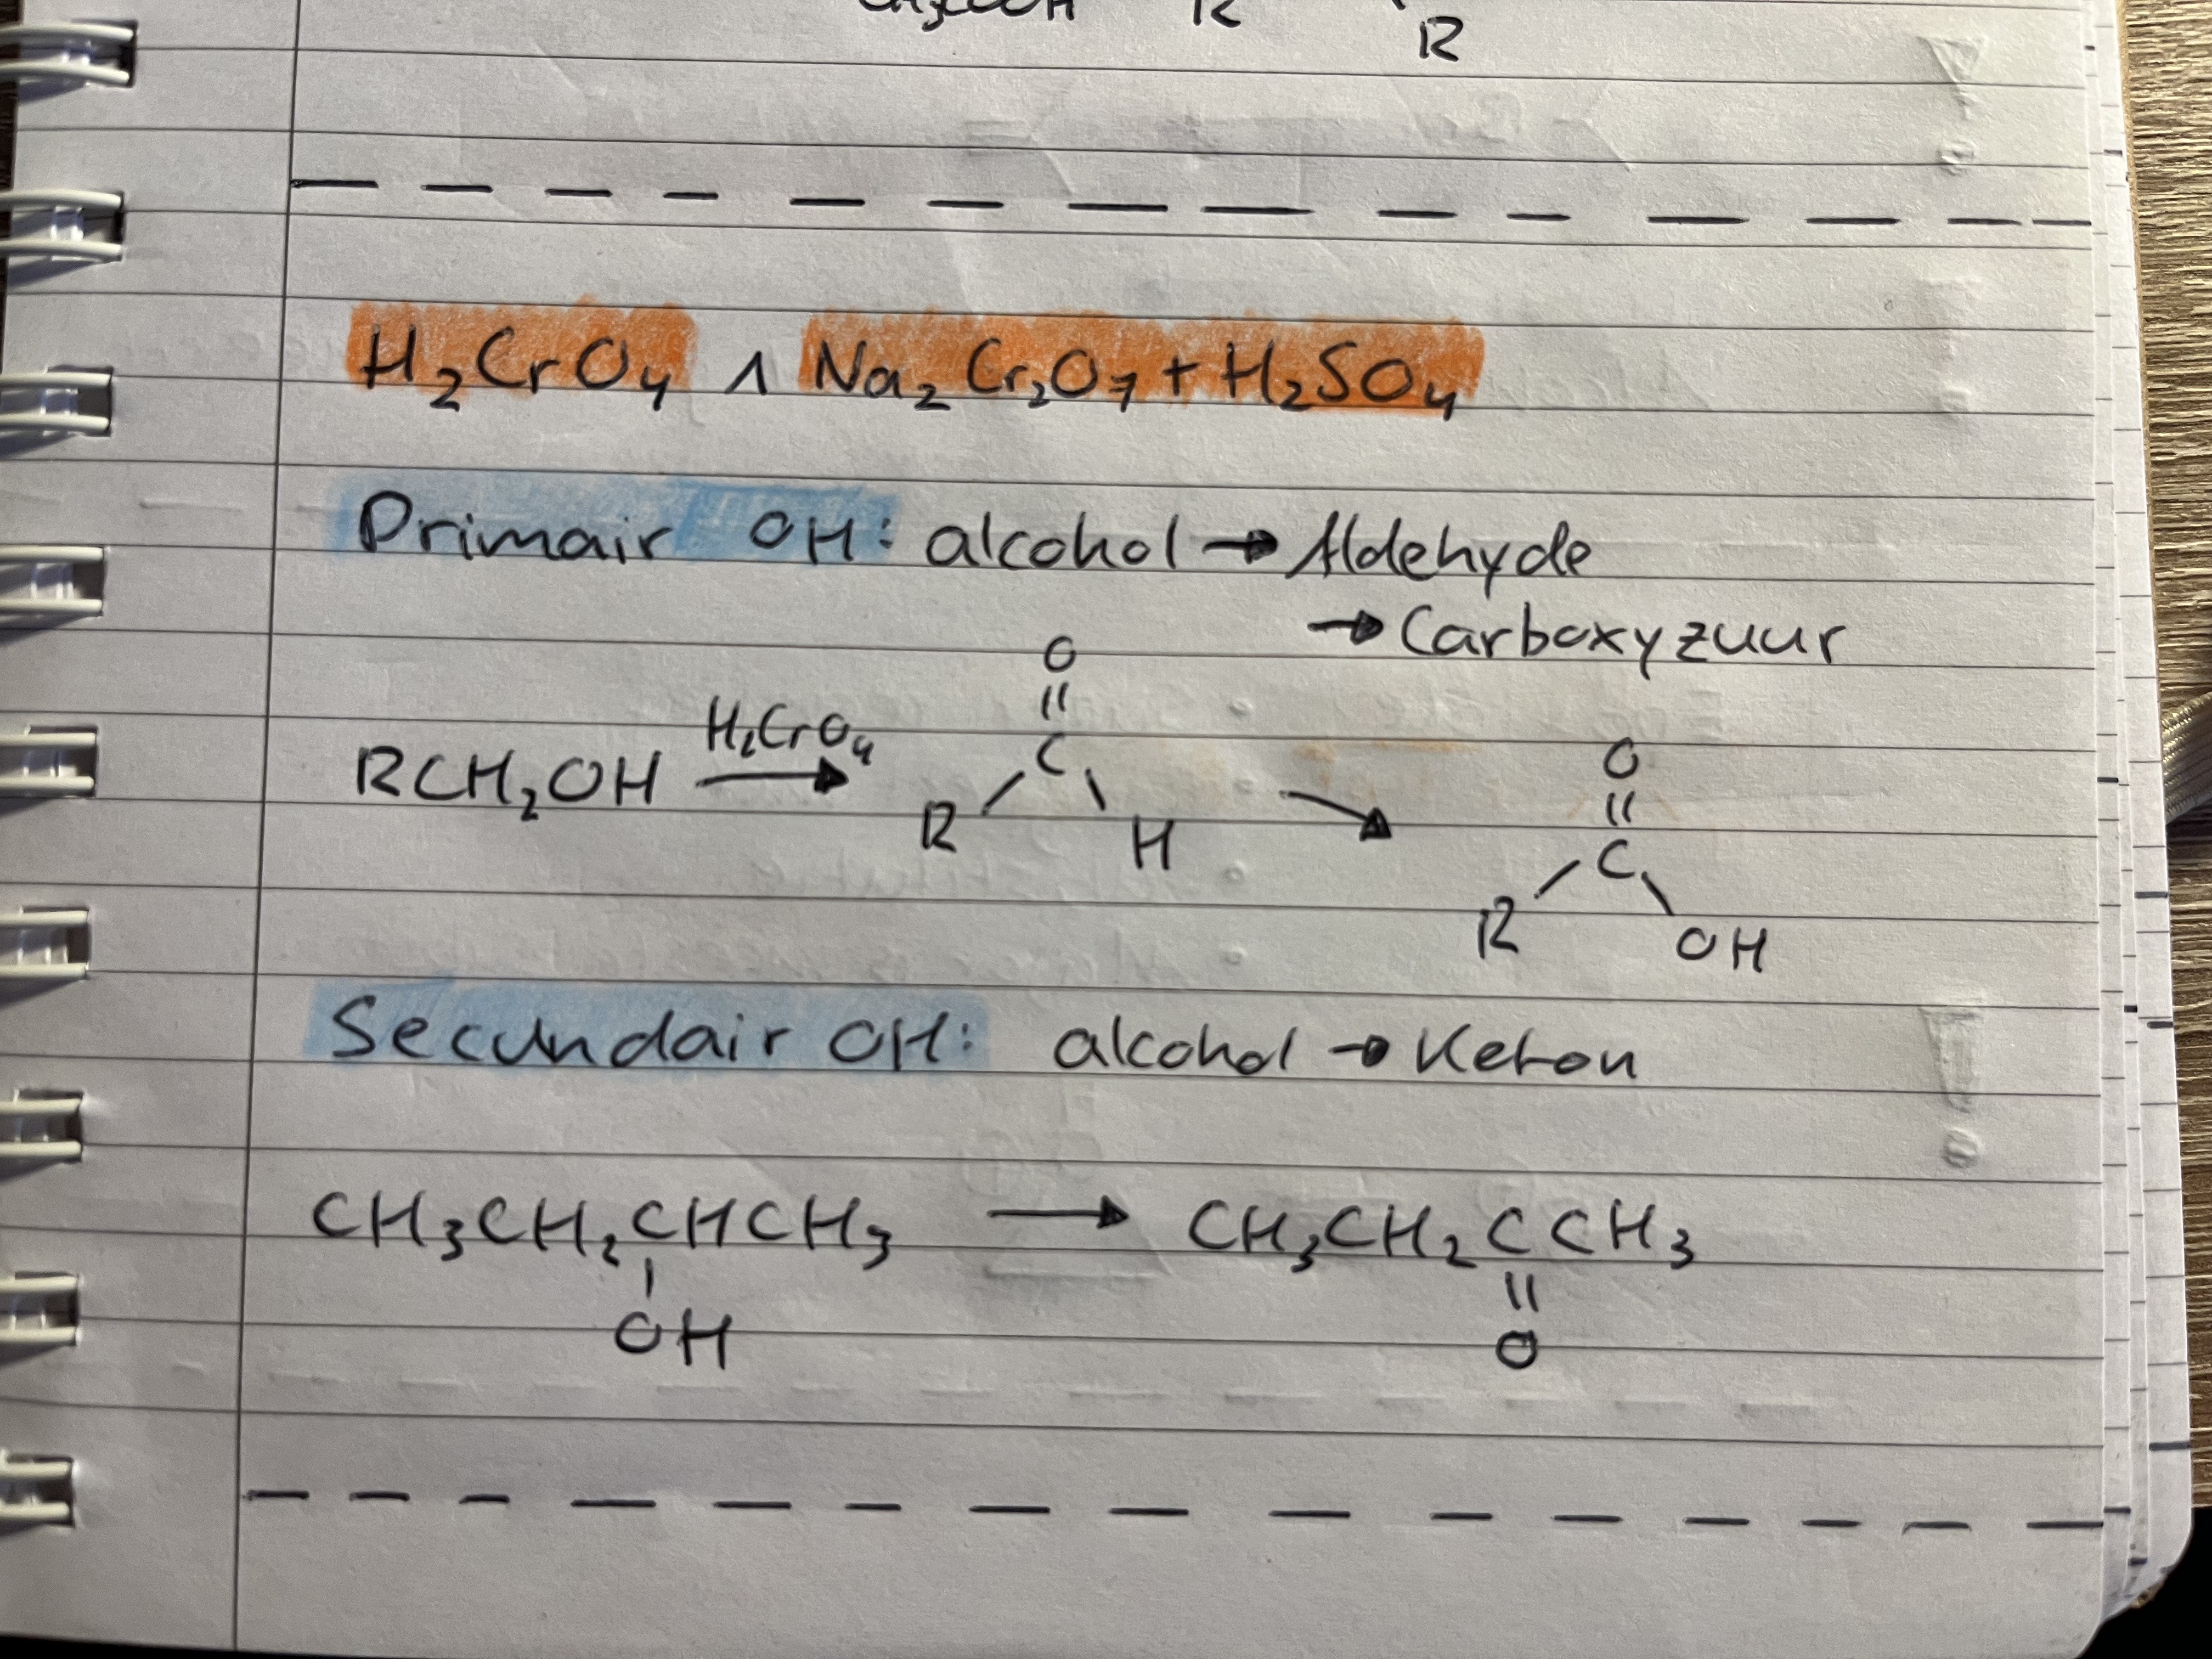 R
R
H₂CrO₄ ∧ Na₂Cr₂O₇ + H₂SO₄
Primair OH: alcohol → Aldehyde
→ Carboxyzuur
O
||
RCH₂OH H₂CrO₄ → C
R / \ H
→
O
||
C
R / \ OH
Secundair OH: alcohol → Keton
CH₃CH₂CHCH₃ → CH₃CH₂CCH₃
| ||
OH O